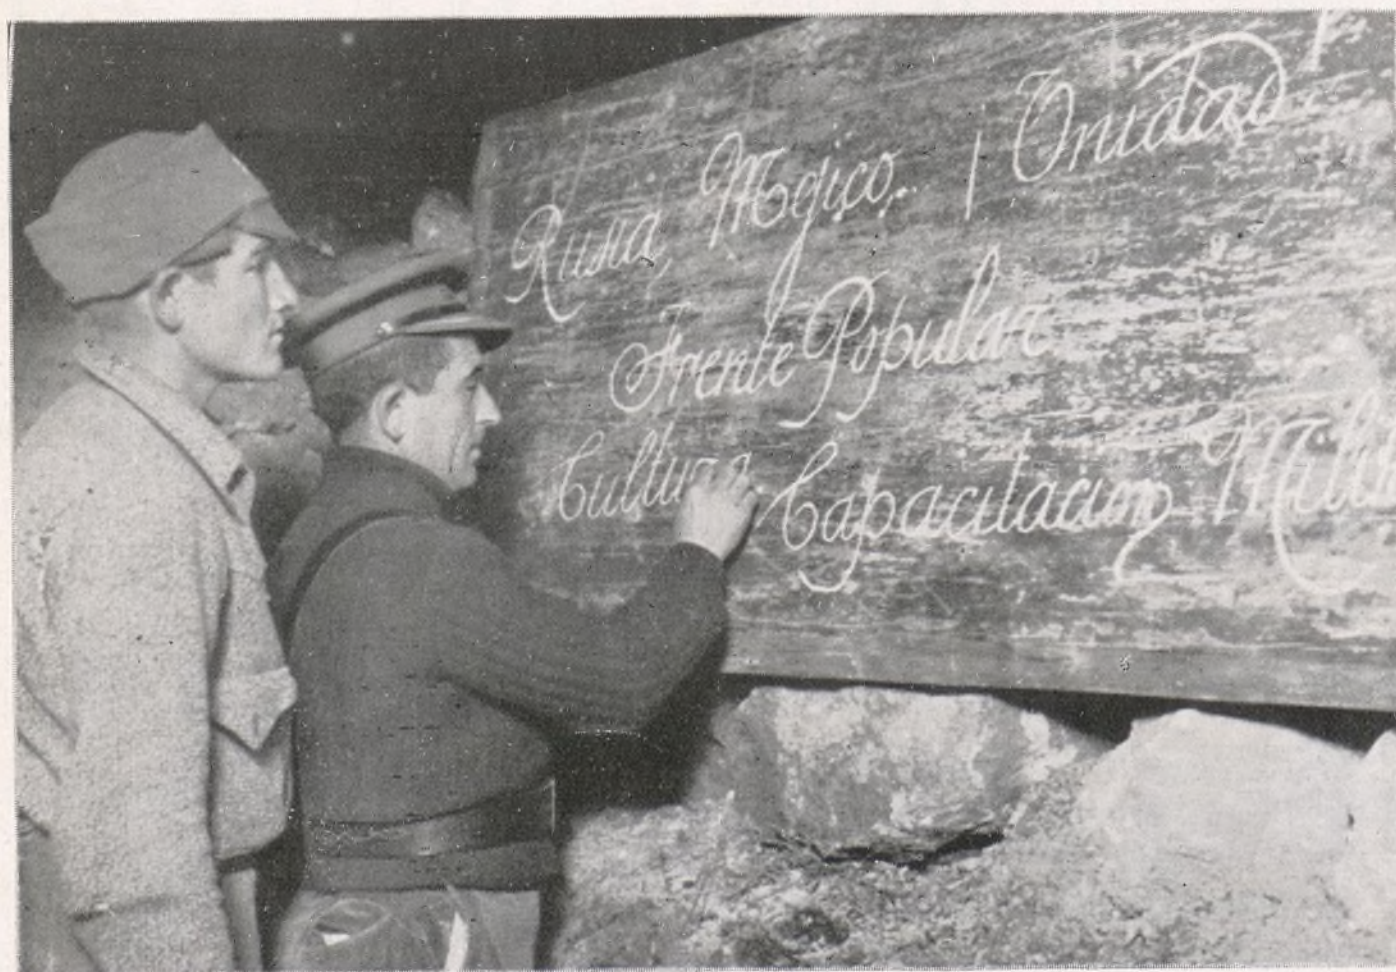 Rusia, Mejico. | Unidad.
Frente Popular
Cultura. Capacitacion